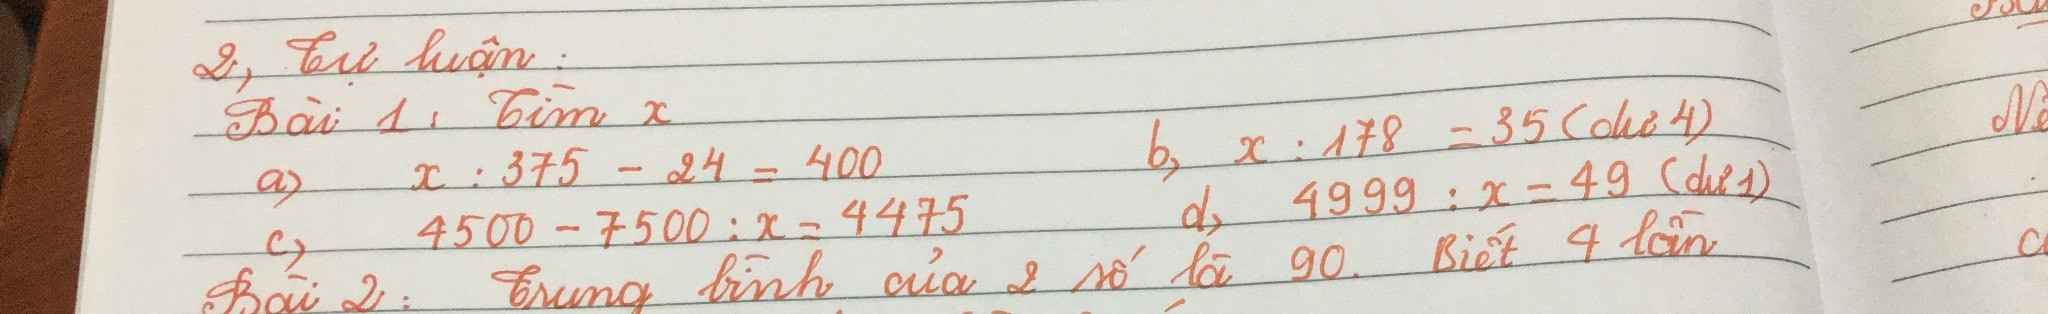 2, Tự luận:
Bài 1: Tìm x
a) x : 375 - 24 = 400 b, x : 178 = 35 (dư 4)
c) 4500 - 7500 : x = 4475 d, 4999 : x = 49 (dư 1)
Bài 2: Trung bình của 2 số là 90. Biết 4 lần